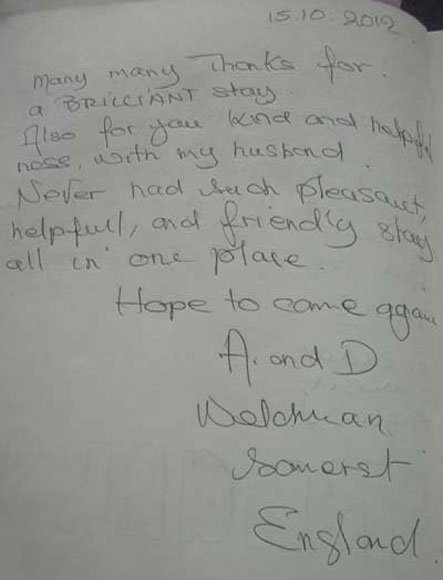 15.10.2012
many many Thanks for.
a BRILLIANT stay.
Also for you kind and helpful
ness, with my husband.
Never had such pleasant,
helpfull, and friendly stay
all in one place.
Hope to came again
A. and D
Welchman
Somerst
England